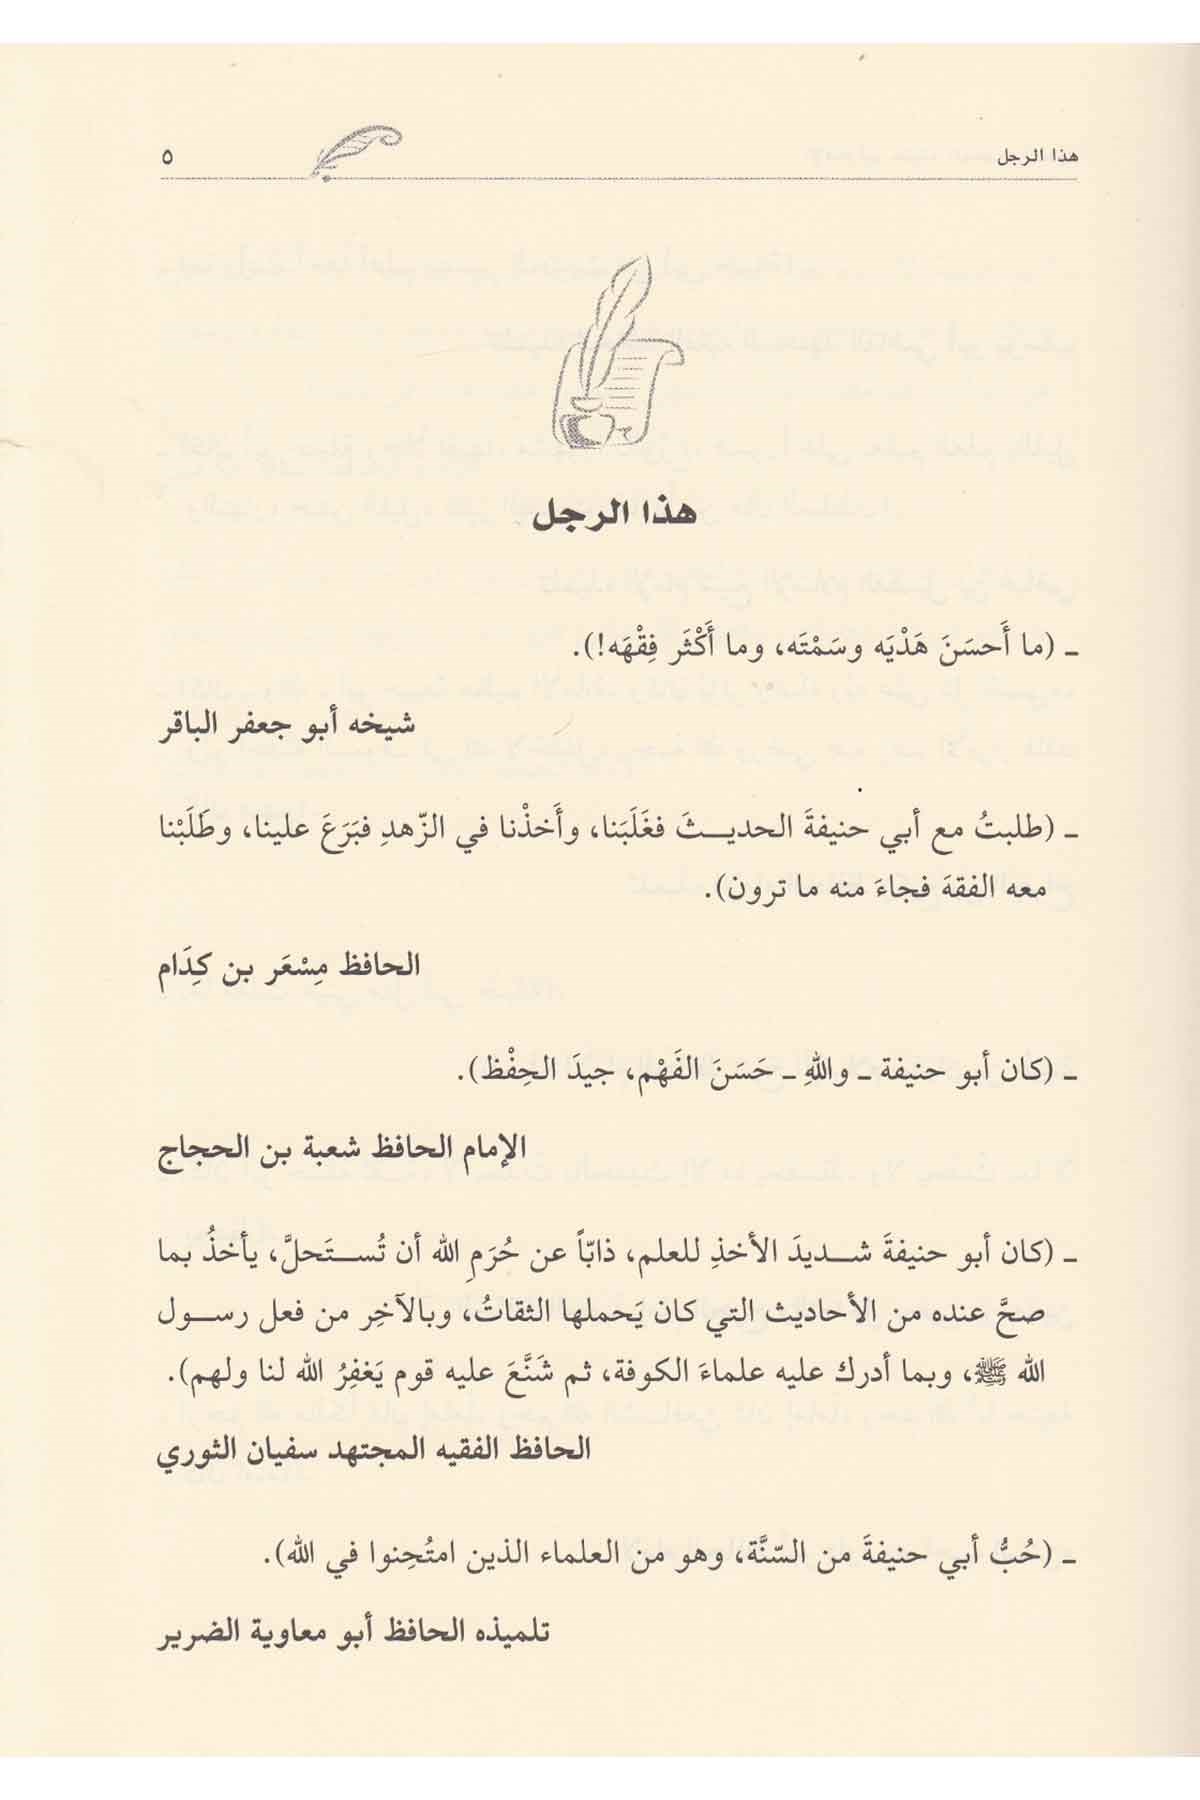 هذا الرجل ٥
هذا الرجل
ـ (ما أَحسَنَ هَدْيَه وسَمْتَه، وما أَكْثَر فِقْهَه!).
شيخه أبو جعفر الباقر
ـ (طلبتُ مع أبي حنيفةَ الحديثَ فغَلَبَنا، وأَخذْنا في الزّهدِ فبَرَعَ علينا، وطَلَبْنا
معه الفقهَ فجاءَ منه ما ترون).
الحافظ مِسْعَر بن كِدَام
ـ (كان أبو حنيفة ـ واللهِ ـ حَسَنَ الفَهْم، جيدَ الحِفْظ).
الإمام الحافظ شعبة بن الحجاج
ـ (كان أبو حنيفةَ شديدَ الأخذِ للعلم، ذابّاً عن حُرَمِ الله أن تُستَحلَّ، يأخذُ بما
صحَّ عنده من الأحاديث التي كان يَحملها الثقاتُ، وبالآخِر من فعل رسول
الله ﷺ، وبما أدرك عليه علماءَ الكوفة، ثم شَنَّعَ عليه قوم يَغفِرُ الله لنا ولهم).
الحافظ الفقيه المجتهد سفيان الثوري
ـ (حُبُّ أبي حنيفةَ من السّنَّة، وهو من العلماء الذين امتُحِنوا في الله).
تلميذه الحافظ أبو معاوية الضرير